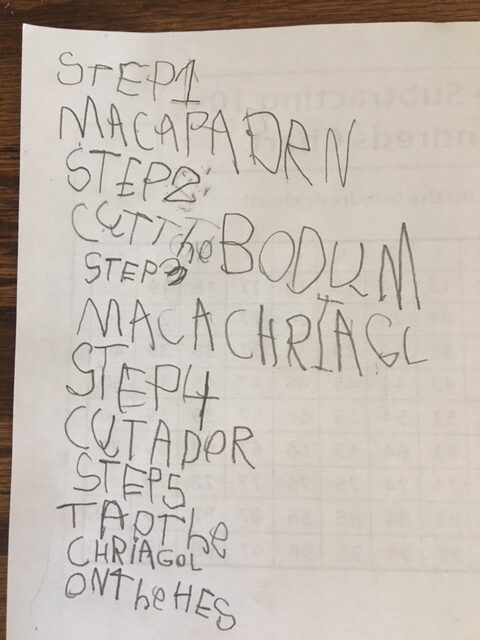 STEP1
MACAPADRN
STEP2
CUTTheBODUM
STEP3
MACACHRIAGL
STEP4
CUTADOR
STEP5
TAPThe
CHRIAGOL
ONTheHES